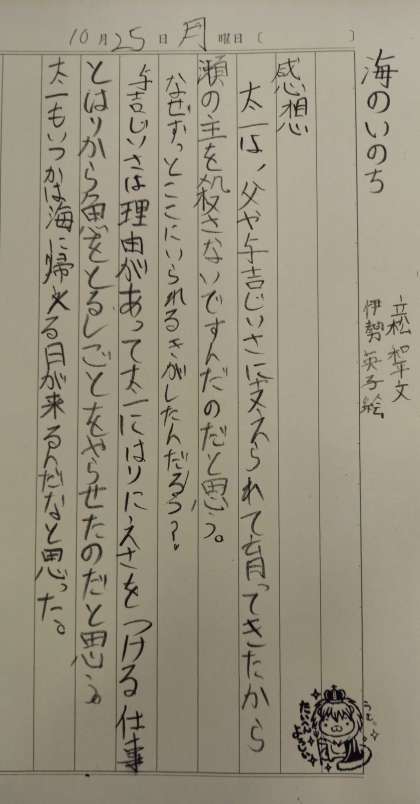 10月25日月曜日〔　　〕
海のいのち
立松和平文
伊勢英子絵
感想
太一は、父や与吉じいさに支えられて育ってきたから
瀬の主を殺さないですんだのだと思う。
なぜずっとここにいられるきがしたんだろう？
与吉じいさは理由があって太一にはりにえさをつける仕事
とはりから魚をとるしごとをやらせたのだと思う。
太一もいつかは海に帰る日が来るんだなと思った。
たいへん
よろしい